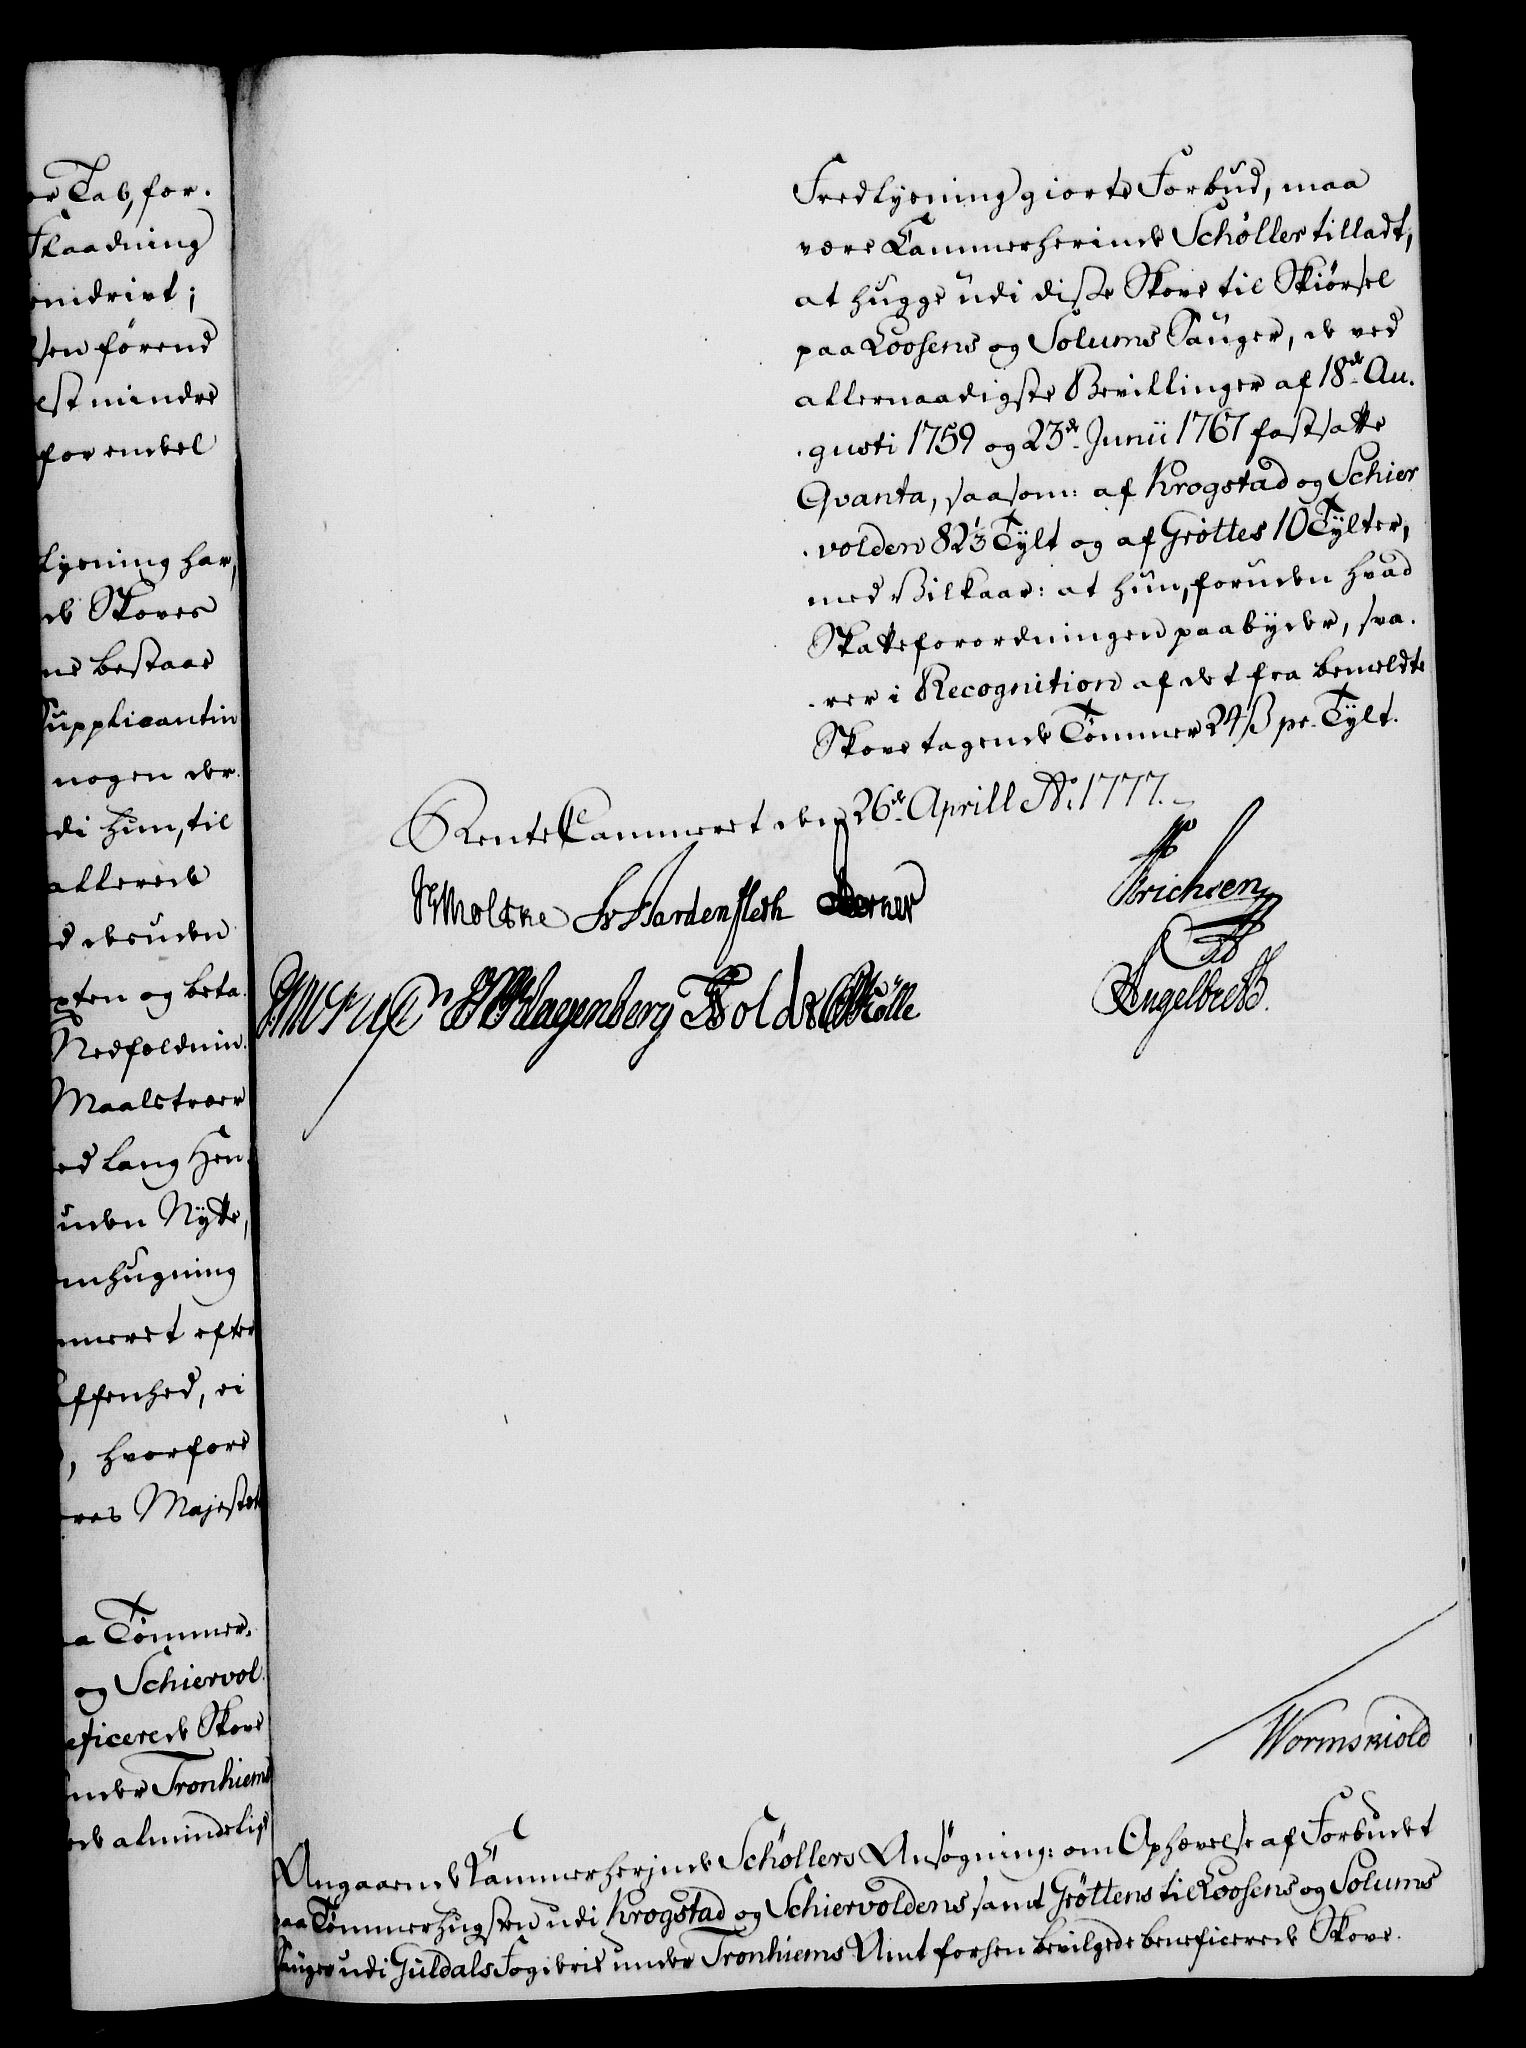 or Tab, for-
Skaadning
endrivt;
sen förend
est mindre
for endel
Lysning har,
de Skoves
ne bestaae
Supplicantin
nogen der-
di hun, til
allerede
d desuden
pten og beta-
Nedfældnin-
Maalstræer
ed lang Hen-
uden Nytte,
mhugning
meret efter
affenhed, ei
, hvorfore
res Majestet
a Tömmer-
og Schiervol-
eficerede Skove
under Tronhiems
ede almindelige
Fredlysning giorte Forbud, maa
være Cammerherinde Schøller tilladt,
at hugge udi disse Skove til Skiörsel
paa Loosens og Solums Sauger, de ved
allernaadigste Bevillinger af 18de Au-
gusti 1759 og 23de Junii 1767 fastsatte
Qvanta, saasom: af Krogstad og Schier
volden 82⅓ Tylt og af Gröttes 10 Tylter,
med Vilkaar: at hun, foruden hvad
Skatteforordningen paabyder, sva-
rer i Recognition af det fra bemeldte
Skove tagende Tömmer 24 ß pr. Tylt.
RenteCammeret den 26de Aprill Ao. 1777.
Moltke Hardenfleth Berner
Erichsen
Klagenberg Holdt Rølle
Engelbret
Wormskiold
Angaaende Kammerherinde Schøllers Ansøgning: om Ophævelse af Forbudet
paa Tømmerhugsten udi Krogstad og Schiervoldens samt Gröttens til Loosens og Solums
Sauger udi Guldals Fogderie under Tronhiems Amt forhen bevilgede beneficerede Skove.